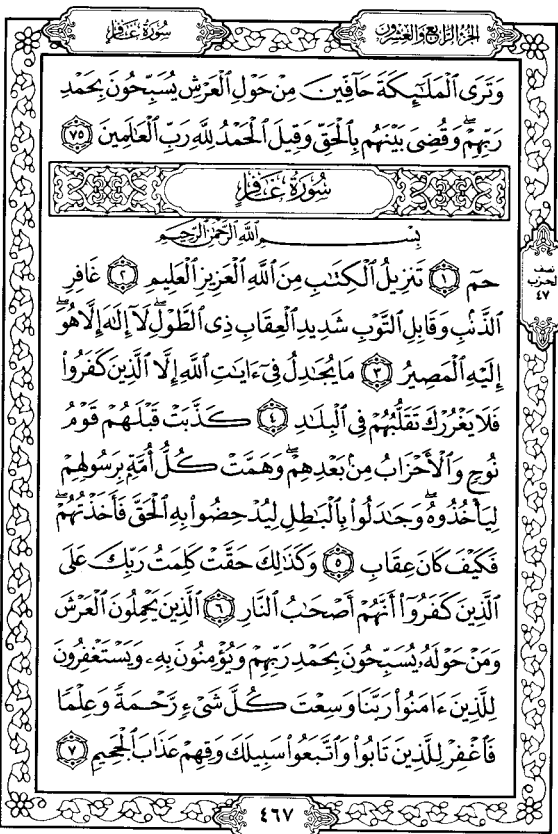 سُورَةُ غَافِرٍ
الجُزْءُ الرَّابِعُ وَالعِشْرُونَ
وَتَرَى ٱلْمَلَٰٓئِكَةَ حَآفِّينَ مِنْ حَوْلِ ٱلْعَرْشِ يُسَبِّحُونَ بِحَمْدِ
رَبِّهِمْۖ وَقُضِىَ بَيْنَهُم بِٱلْحَقِّ وَقِيلَ ٱلْحَمْدُ لِلَّهِ رَبِّ ٱلْعَٰلَمِينَ ٧٥
سُورَةُ غَافِرٍ
بِسْمِ ٱللَّهِ ٱلرَّحْمَٰنِ ٱلرَّحِيمِ
حمٓ ١ تَنزِيلُ ٱلْكِتَٰبِ مِنَ ٱللَّهِ ٱلْعَزِيزِ ٱلْعَلِيمِ ٢ غَافِرِ
ٱلذَّنۢبِ وَقَابِلِ ٱلتَّوْبِ شَدِيدِ ٱلْعِقَابِ ذِى ٱلطَّوْلِۖ لَآ إِلَٰهَ إِلَّا هُوَۖ
إِلَيْهِ ٱلْمَصِيرُ ٣ مَا يُجَٰدِلُ فِىٓ ءَايَٰتِ ٱللَّهِ إِلَّا ٱلَّذِينَ كَفَرُوا۟
فَلَا يَغْرُرْكَ تَقَلُّبُهُمْ فِى ٱلْبِلَٰدِ ٤ كَذَّبَتْ قَبْلَهُمْ قَوْمُ
نُوحٍ وَٱلْأَحْزَابُ مِنۢ بَعْدِهِمْۖ وَهَمَّتْ كُلُّ أُمَّةٍۭ بِرَسُولِهِمْ
لِيَأْخُذُوهُۖ وَجَٰدَلُوا۟ بِٱلْبَٰطِلِ لِيُدْحِضُوا۟ بِهِ ٱلْحَقَّ فَأَخَذْتُهُمْۖ
فَكَيْفَ كَانَ عِقَابِ ٥ وَكَذَٰلِكَ حَقَّتْ كَلِمَتُ رَبِّكَ عَلَى
ٱلَّذِينَ كَفَرُوٓا۟ أَنَّهُمْ أَصْحَٰبُ ٱلنَّارِ ٦ ٱلَّذِينَ يَحْمِلُونَ ٱلْعَرْشَ
وَمَنْ حَوْلَهُۥ يُسَبِّحُونَ بِحَمْدِ رَبِّهِمْ وَيُؤْمِنُونَ بِهِۦ وَيَسْتَغْفِرُونَ
لِلَّذِينَ ءَامَنُوا۟ رَبَّنَا وَسِعْتَ كُلَّ شَىْءٍ رَّحْمَةً وَعِلْمًا
فَٱغْفِرْ لِلَّذِينَ تَابُوا۟ وَٱتَّبَعُوا۟ سَبِيلَكَ وَقِهِمْ عَذَابَ ٱلْجَحِيمِ ٧
نصف
الحزب
٤٧
٤٦٧